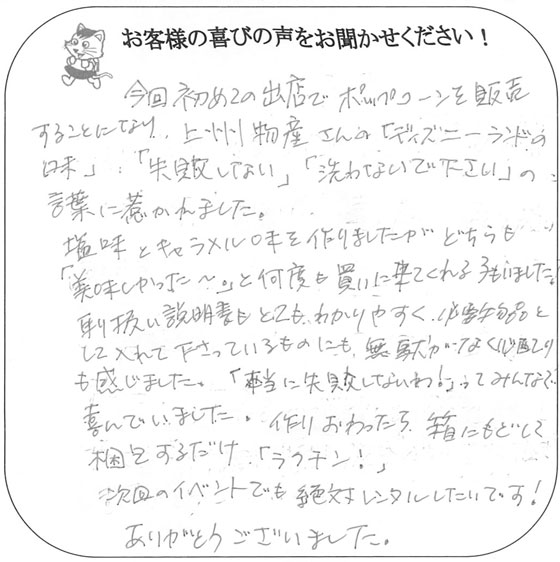 お客様の喜びの声をお聞かせください！
今回初めての出店でポップコーンを販売
することになり、上州物産さんの「ディズニーランドの
味」「失敗しない」「洗わないで下さい」の
言葉に惹かれました。
塩味とキャラメル味を作りましたがどちらも
「美味しかった〜。」と何度も買いに来てくれる子もいました。
取り扱い説明書もとてもわかりやすく、必要物品と
して入れて下さっているものにも、無駄がなく心配り
も感じました。「本当に失敗しないわ！」ってみんなで
喜んでいました。作りおわったら、箱にもどして
梱包するだけ「ラクチン！」
次回のイベントでも絶対レンタルしたいです！
ありがとうございました。